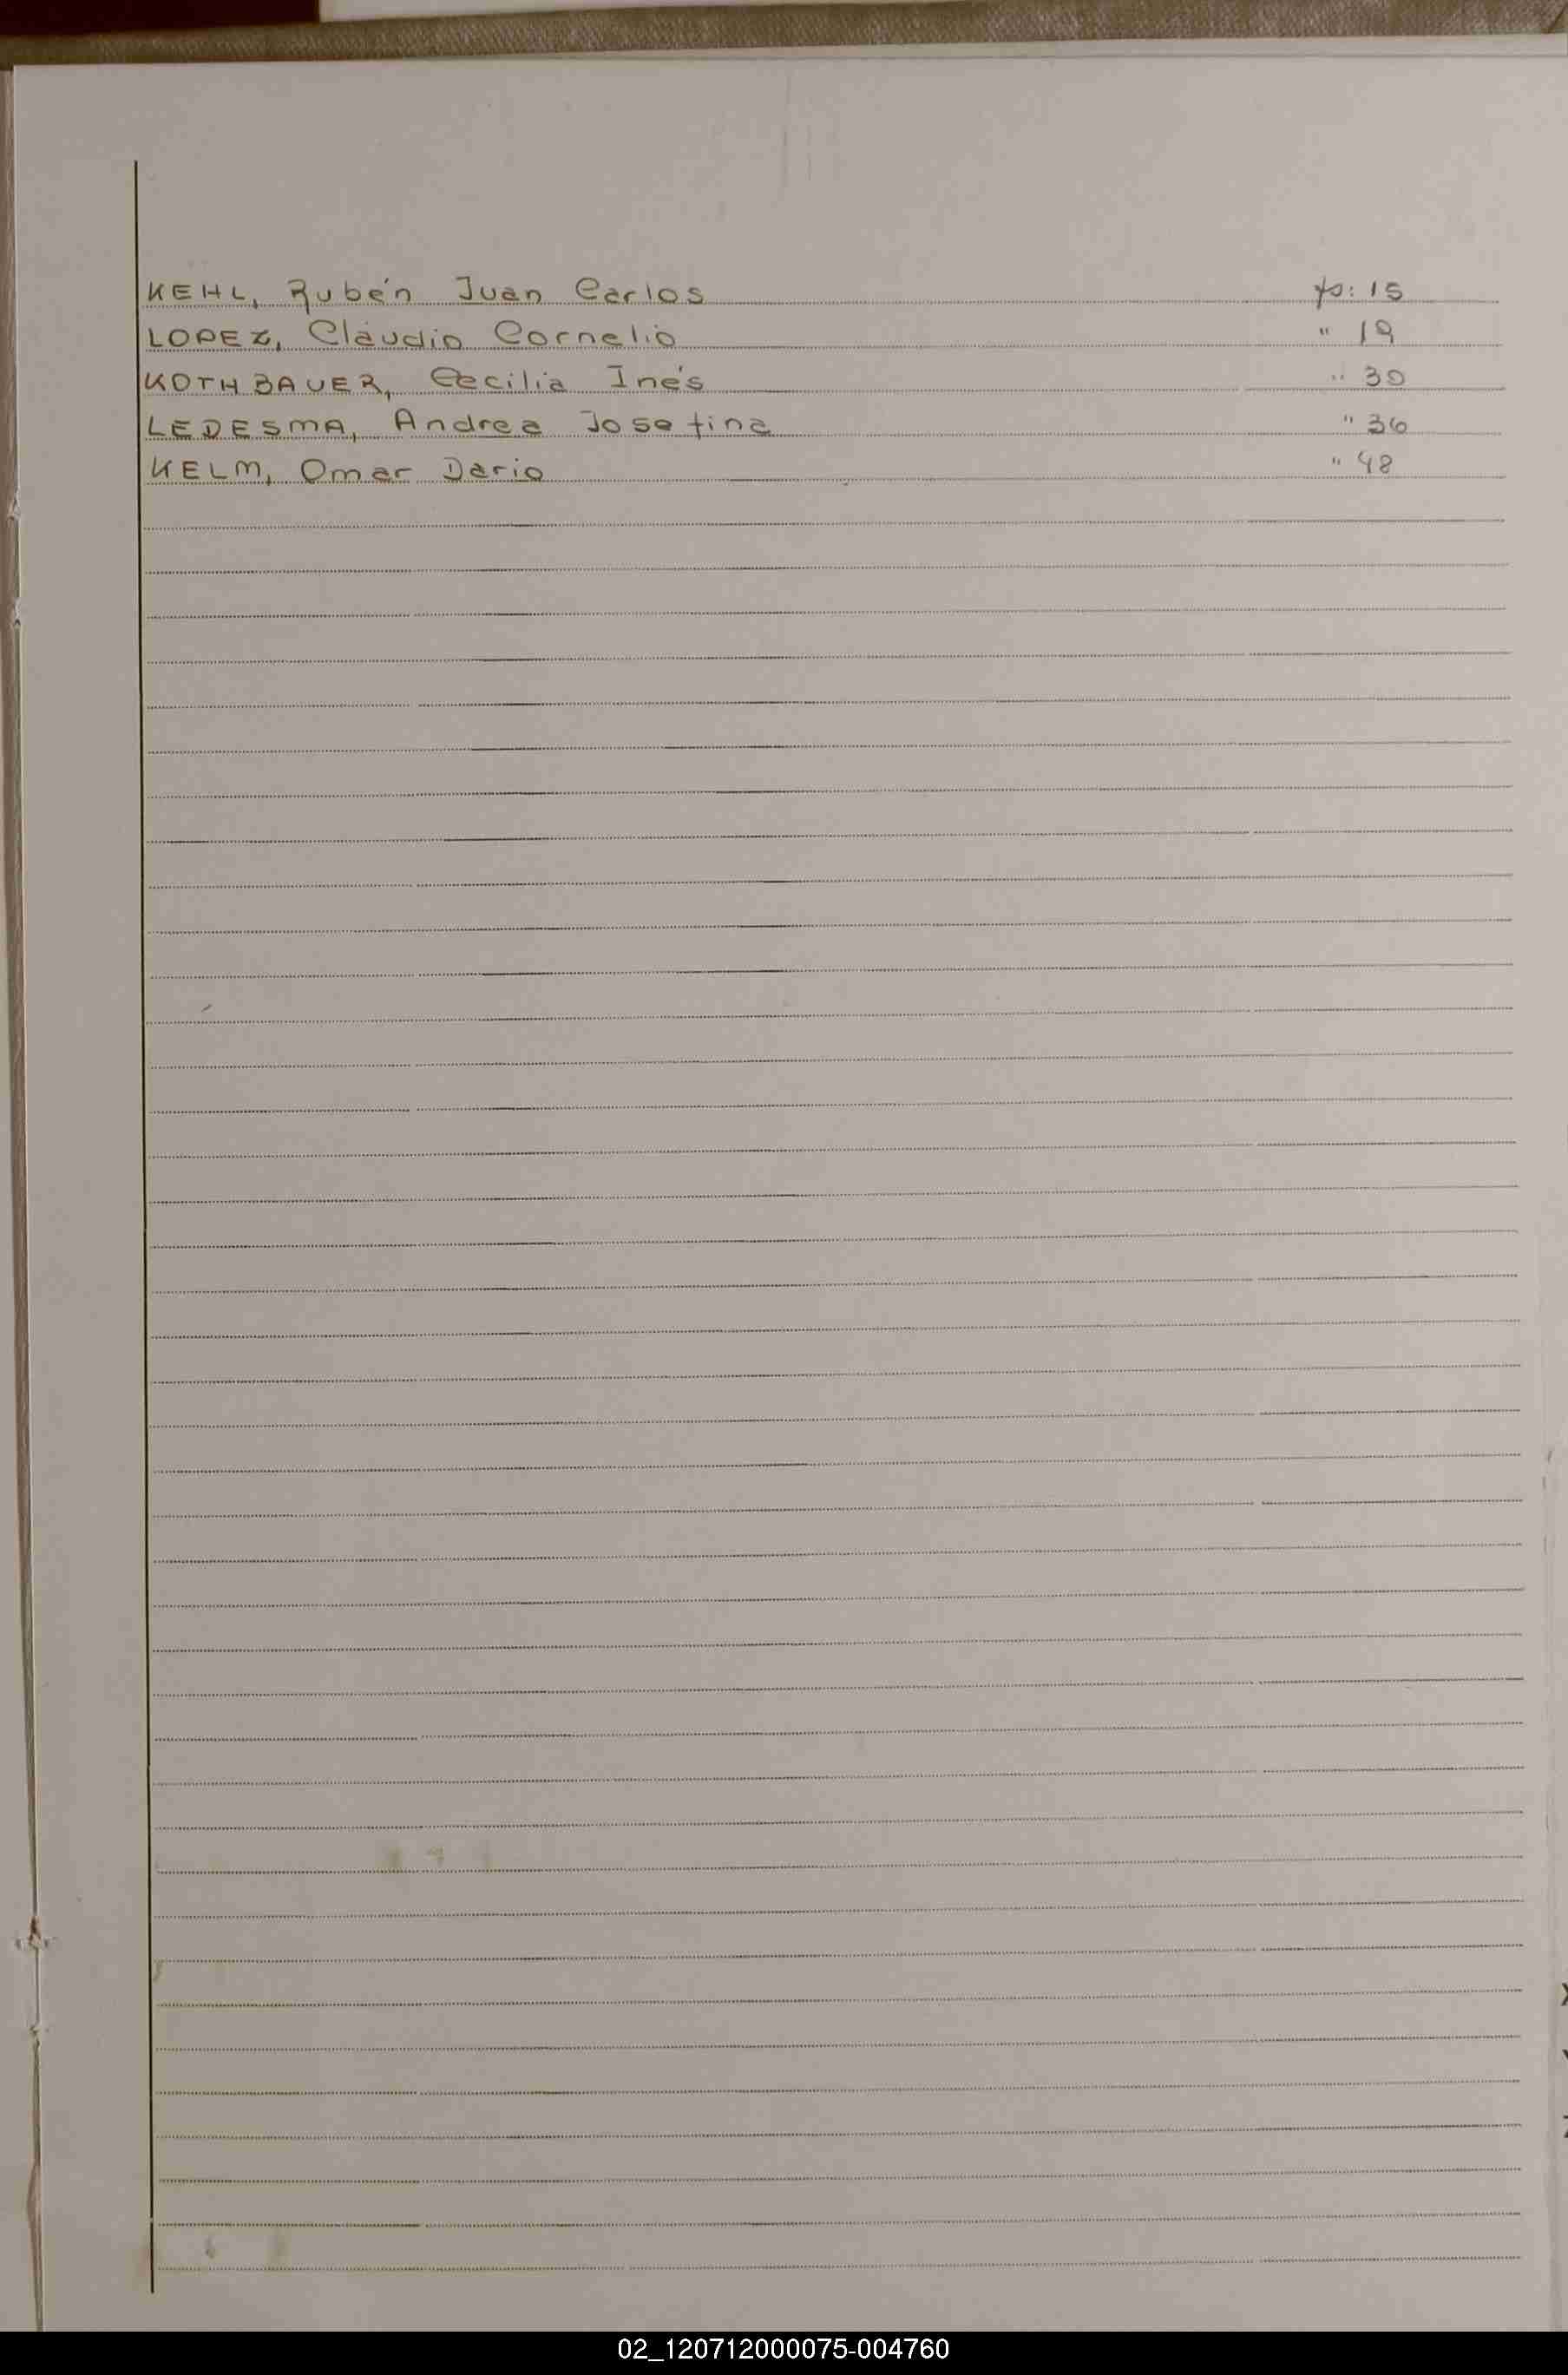 KEHL, Rubén Juan Carlos fo: 15
LOPEZ, Claudio Cornelio " 19
KOTHBAUER, Cecilia Inés " 30
LEDESMA, Andrea Josefina " 36
KELM, Omar Dario " 48
02_120712000075-004760